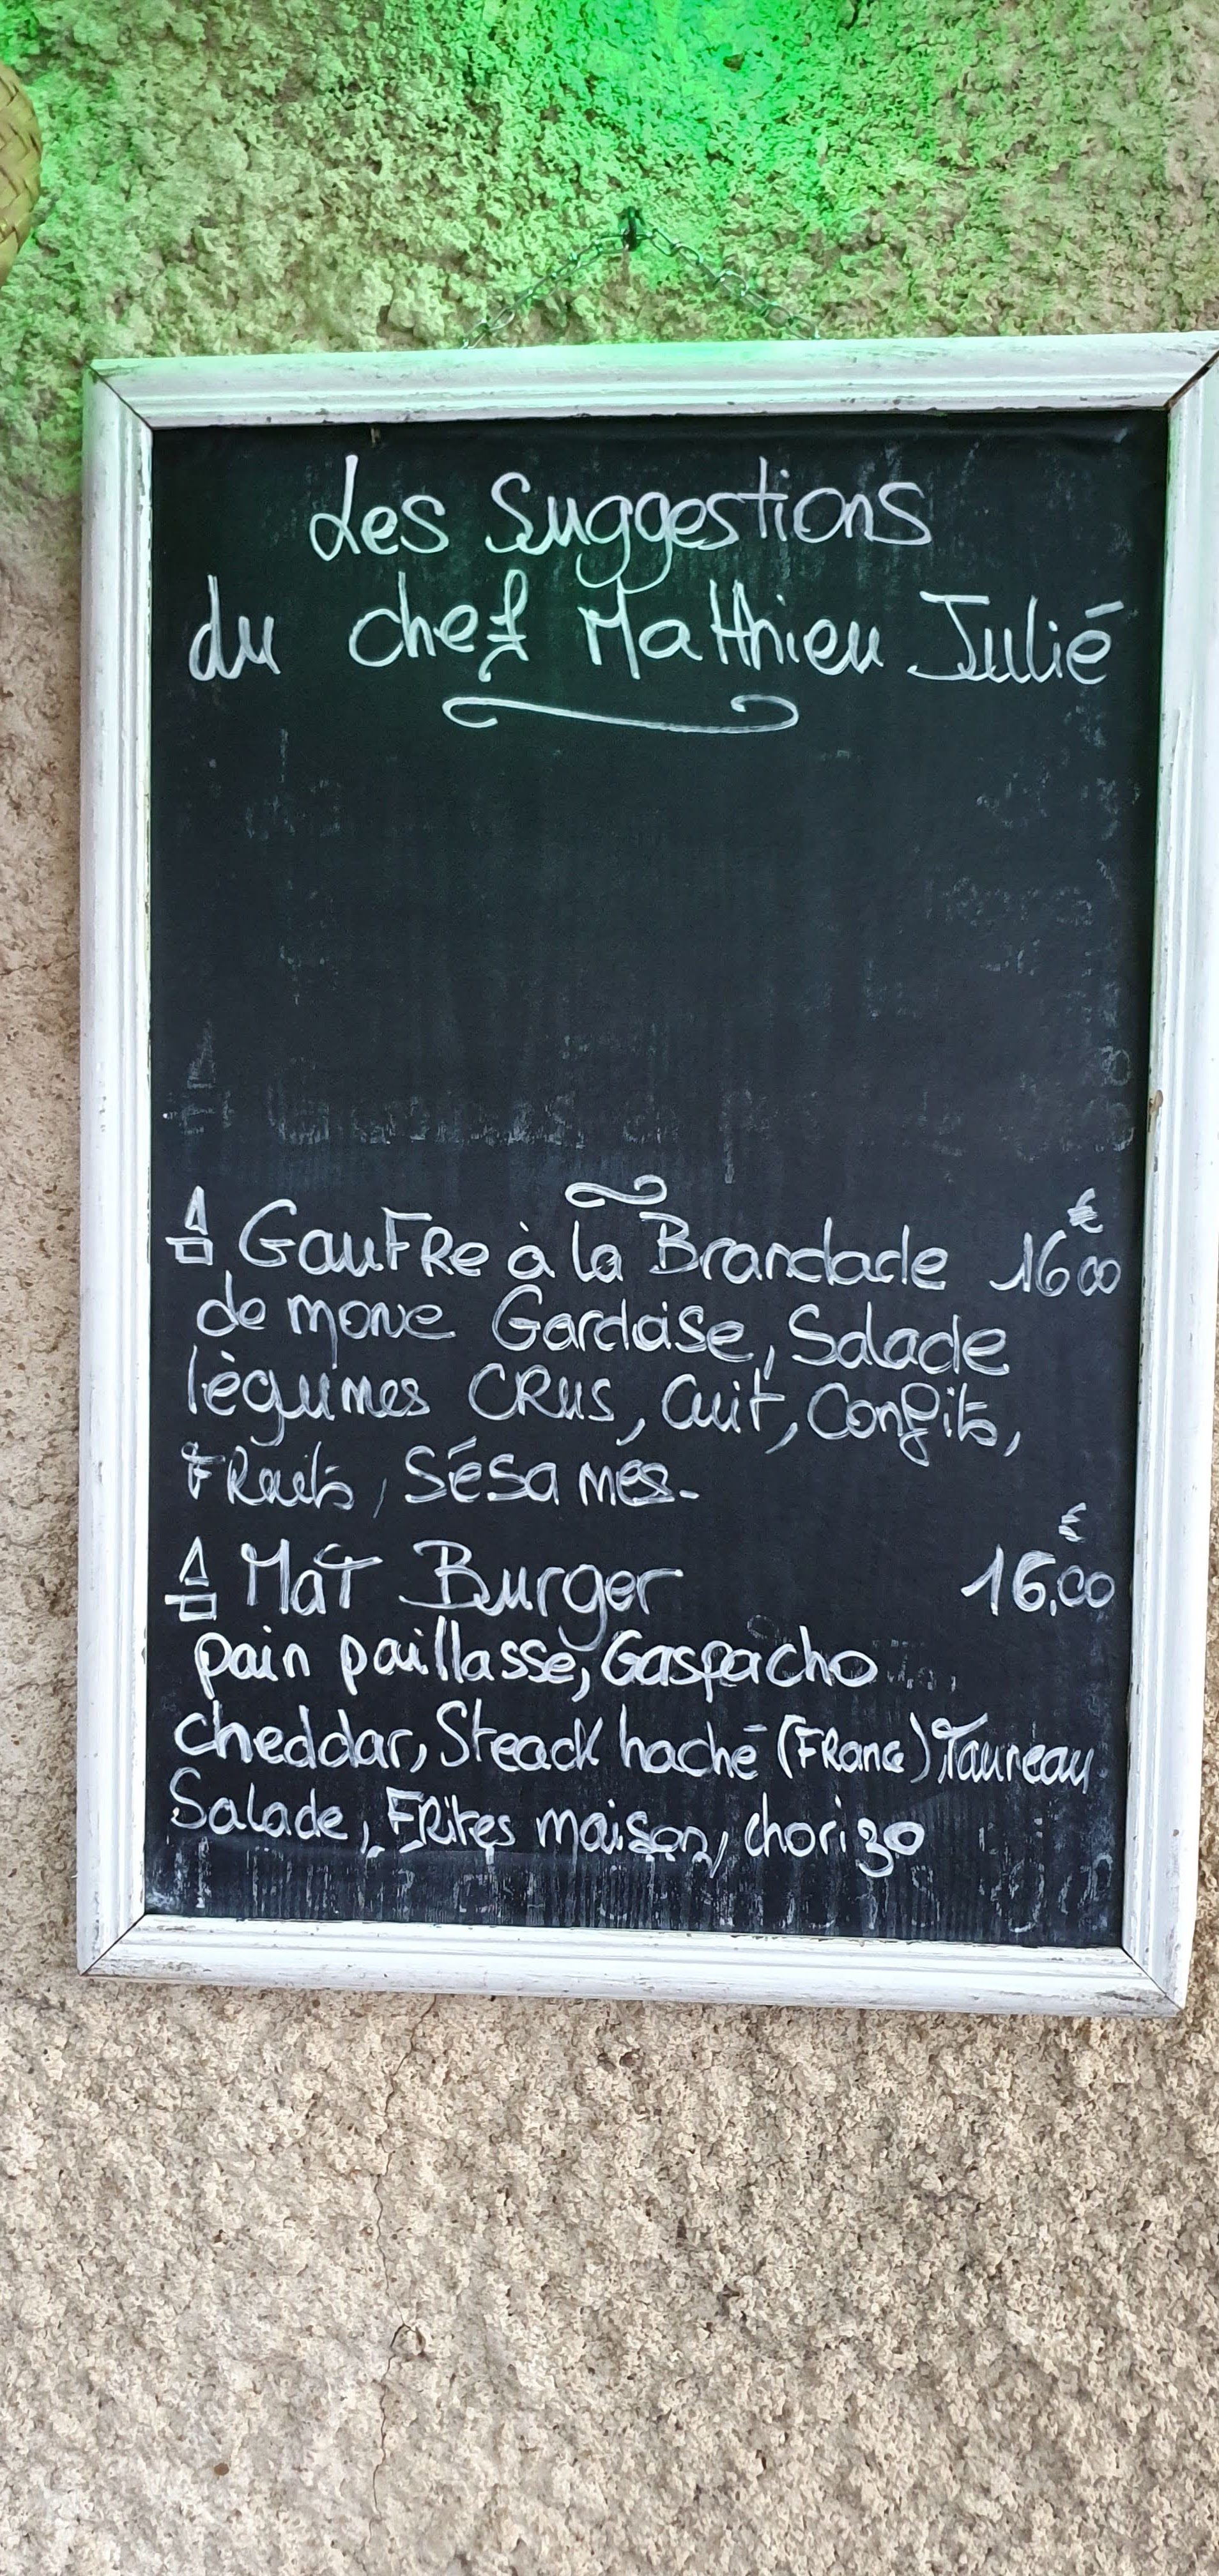 Les Suggestions
du chef Matthieu Julié
GauFRe à la Brandade 16€00
de morue Gardoise, Salade
lègumes CRus, Cuit, Confits,
FRuits, Sésamés.
MaT Burger 16,€00
pain paillasse, Gaspacho
cheddar, Steack haché (FRance) Taureau
Salade, FRites maison, chorizo